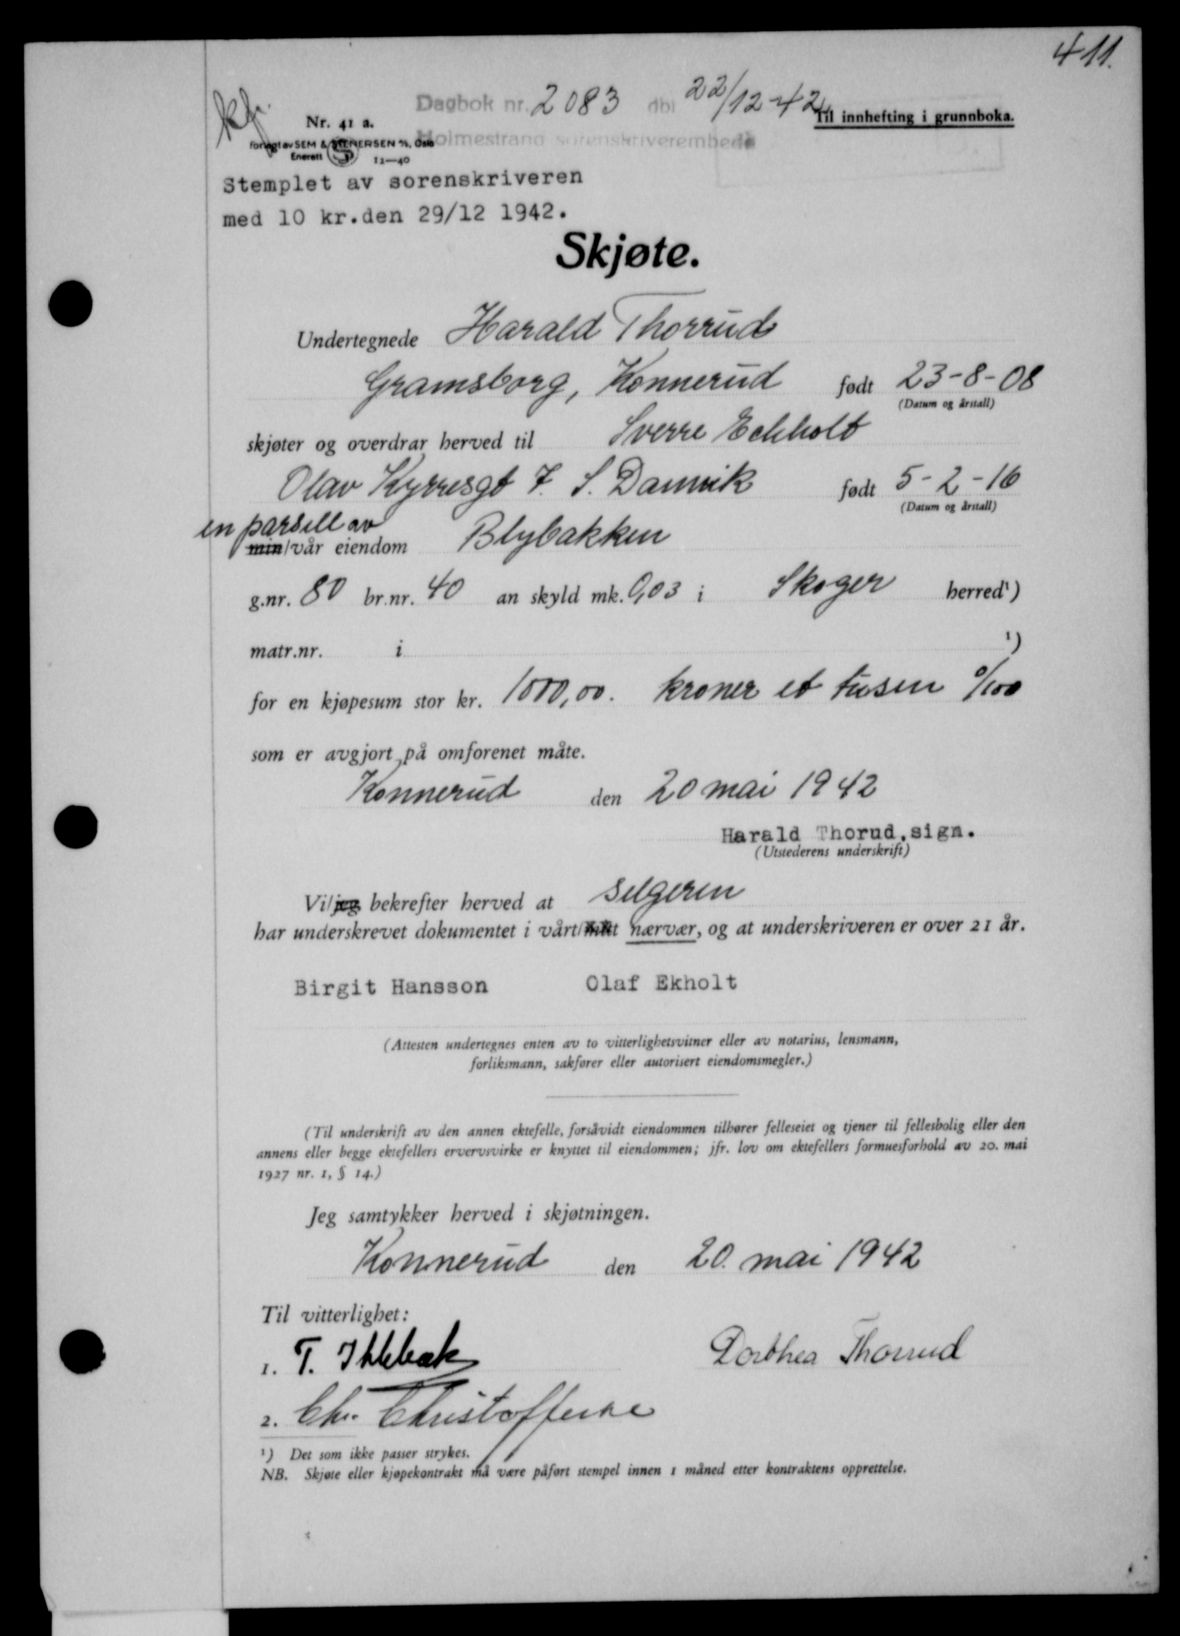 411.
kfr.
Dagbok nr. 2083 dbl 22/12-42
Holmestrand sorenskriverembede
Til innhefting i grunnboka.
Nr. 41 a.
Forlagt av SEM & STENERSEN A/S, Oslo
Enerett S 12—40
Stemplet av sorenskriveren
med 10 kr.den 29/12 1942.
Skjøte.
Undertegnede Harald Thorrud
Gramsborg, Konnerud født 23-8-08
(Datum og årstall)
skjøter og overdrar herved til Sverre Eckholt
Olav Kyrresgt 7. S. Danvik født 5-2-16
(Datum og årstall)
en parsell av
min/vår eiendom Blybakken
g.nr. 80 br.nr. 40 an skyld mk. 0,03 i Skoger herred¹)
matr.nr. i ¹)
for en kjøpesum stor kr. 1000,00. kroner et tusen 0/100
som er avgjort på omforenet måte.
Konnerud den 20 mai 1942
Harald Thorud.sign.
(Utstederens underskrift)
Vi/jeg bekrefter herved at selgeren
har underskrevet dokumentet i vårt/mitt nærvær, og at underskriveren er over 21 år.
Birgit Hansson Olaf Ekholt
(Attesten undertegnes enten av to vitterlighetsvitner eller av notarius, lensmann,
forliksmann, sakfører eller autorisert eiendomsmegler.)
(Til underskrift av den annen ektefelle, forsåvidt eiendommen tilhører felleseiet og tjener til fellesbolig eller den
annens eller begge ektefellers ervervsvirke er knyttet til eiendommen; jfr. lov om ektefellers formuesforhold av 20. mai
1927 nr. 1, § 14.)
Jeg samtykker herved i skjøtningen.
Konnerud den 20. mai 1942
Til vitterlighet:
1. T. Dorthea Thorrud
2. Chr.
¹) Det som ikke passer strykes.
NB. Skjøte eller kjøpekontrakt må være påført stempel innen 1 måned etter kontraktens opprettelse.